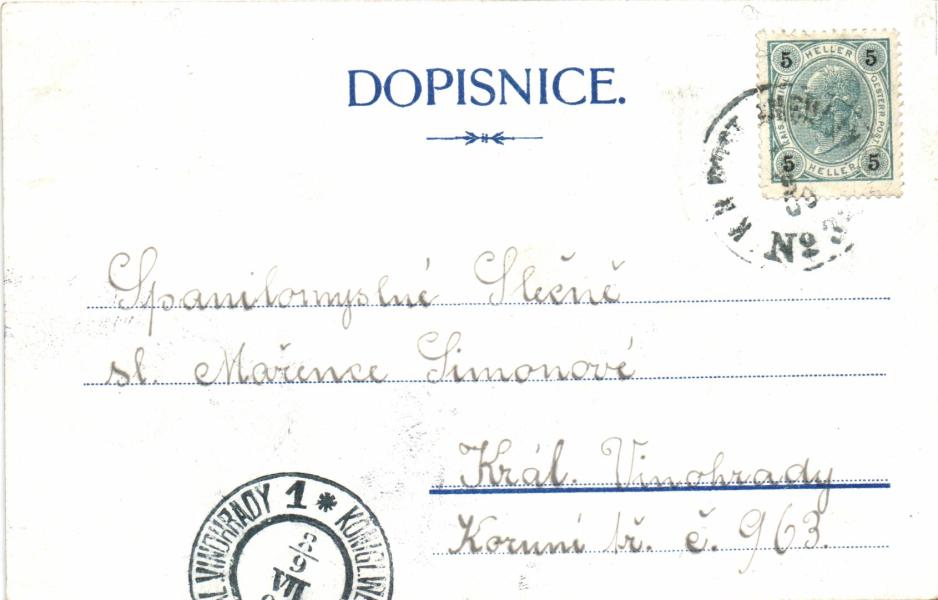 DOPISNICE.
5 HELLER 5
OESTERR. POST
5 HELLER 5
Nº
Spanilomyslné Slečně
sl. Mařence Simonové
Král. Vinohrady
Koruní tř. č. 963.
VINOHRADY 1 * KÖNIGL.WE
8/9
VII